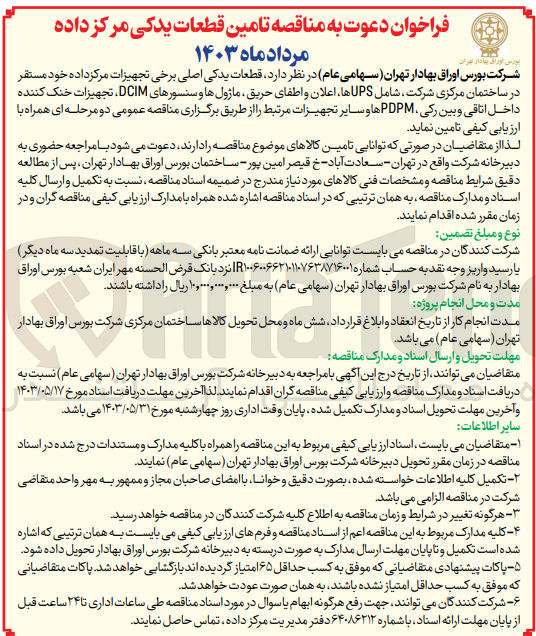 فراخوان دعوت به مناقصه تامین قطعات یدکی مرکز داده
مرداد ماه ۱۴۰۳
بورس اوراق بهادار تهران
شرکت بورس اوراق بهادار تهران (سهامی عام) در نظر دارد، قطعات یدکی اصلی برخی تجهیزات مرکز داده خود مستقر
در ساختمان مرکزی شرکت، شامل UPSها، اعلان و اطفای حریق، ماژول ها و سنسورهای DCIM، تجهیزات خنک کننده
داخل اتاقی و بین رکی، PDPMها و سایر تجهیزات مرتبط را از طریق برگزاری مناقصه عمومی دو مرحله ای همراه با
ارزیابی کیفی تامین نماید.
لذا از متقاضیان در صورتی که توانایی تامین کالاهای موضوع مناقصه را دارند، دعوت می شود با مراجعه حضوری به
دبیرخانه شرکت واقع در تهران - سعادت آباد - خ قیصر امین پور - ساختمان بورس اوراق بهادار تهران، پس از مطالعه
دقیق شرایط مناقصه و مشخصات فنی کالاهای مورد نیاز مندرج در ضمیمه اسناد مناقصه، نسبت به تکمیل و ارسال کلیه
اسناد و مدارک مناقصه، به همان ترتیبی که در اسناد مناقصه اشاره شده همراه با مدارک ارزیابی کیفی مناقصه گران و در
زمان مقرر شده اقدام نمایند.
نوع و مبلغ تضمین:
شرکت کنندگان در مناقصه می بایست توانایی ارائه ضمانت نامه معتبر بانکی سه ماهه (با قابلیت تمدید سه ماه دیگر)
یا رسید واریز وجه نقد به حساب شماره نزد بانک قرض الحسنه مهر ایران شعبه بورس اوراق
بهادار به نام شرکت بورس اوراق بهادار تهران (سهامی عام) به مبلغ ۱۰,۰۰۰,۰۰۰,۰۰۰ ریال را داشته باشند.
مدت و محل انجام پروژه:
مدت انجام کار از تاریخ انعقاد و ابلاغ قرارداد، شش ماه و محل تحویل کالاها ساختمان مرکزی شرکت بورس اوراق بهادار
تهران (سهامی عام) می باشد.
مهلت تحویل و ارسال اسناد و مدارک مناقصه:
متقاضیان می توانند، از تاریخ درج این آگهی با مراجعه به دبیرخانه شرکت بورس اوراق بهادار تهران (سهامی عام) نسبت به
دریافت اسناد و مدارک مناقصه و ارزیابی کیفی مناقصه گران اقدام نمایند. لذا آخرین مهلت دریافت اسناد مورخ ۱۴۰۳/۰۵/۱۷
و آخرین مهلت تحویل اسناد و مدارک تکمیل شده، پایان وقت اداری روز چهارشنبه مورخ ۱۴۰۳/۰۵/۳۱ می باشد.
سایر اطلاعات:
۱- متقاضیان می بایست، اسناد ارزیابی کیفی مربوط به این مناقصه را همراه با کلیه مدارک و مستندات درج شده در اسناد
مناقصه در زمان مقرر تحویل دبیرخانه شرکت بورس اوراق بهادار تهران (سهامی عام) نمایند.
۲- تکمیل کلیه اطلاعات خواسته شده، بصورت دقیق و خوانا، با امضای صاحبان مجاز و ممهور به مهر واحد متقاضی
شرکت در مناقصه الزامی می باشد.
۳- هرگونه تغییر در شرایط و زمان مناقصه به اطلاع کلیه شرکت کنندگان در مناقصه خواهد رسید.
۴- کلیه مدارک مربوط به این مناقصه اعم از اسناد مناقصه و فرم های ارزیابی کیفی می بایست به همان ترتیبی که اشاره
شده است تکمیل و تا پایان مهلت ارسال مدارک به صورت دربسته به دبیرخانه شرکت بورس اوراق بهادار تحویل داده شود.
۵- پاکات پیشنهادی متقاضیانی که موفق به کسب حداقل ۶۵ امتیاز گردیده اند بازگشایی خواهد شد. پاکات متقاضیانی
که موفق به کسب حداقل امتیاز نشده باشند، به همان صورت عودت خواهد شد.
۶- شرکت کنندگان می توانند، جهت رفع هرگونه ابهام یا سوال در مورد اسناد مناقصه طی ساعات اداری تا ۲۴ ساعت قبل
از پایان مهلت ارائه اسناد، با شماره ۶۴۰۸۶۲۱۲ دفتر مدیریت مرکز داده، تماس حاصل نمایند.